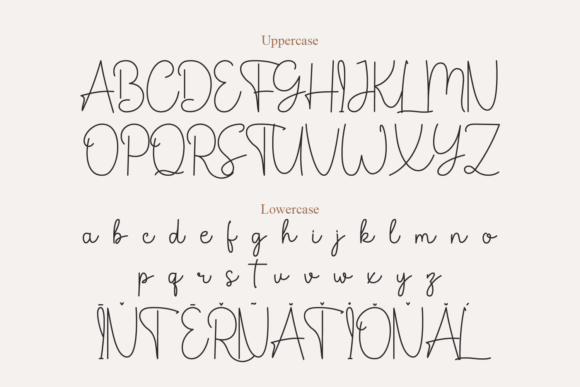 Uppercase
ABCDEFGHIJKLMN
OPQRSTUVWXYZ
Lowercase
a b c d e f g h i j k l m n o
p q r s t u v w x y z
ĪŇTĒŘÑĂŤİŎŇĂĹ